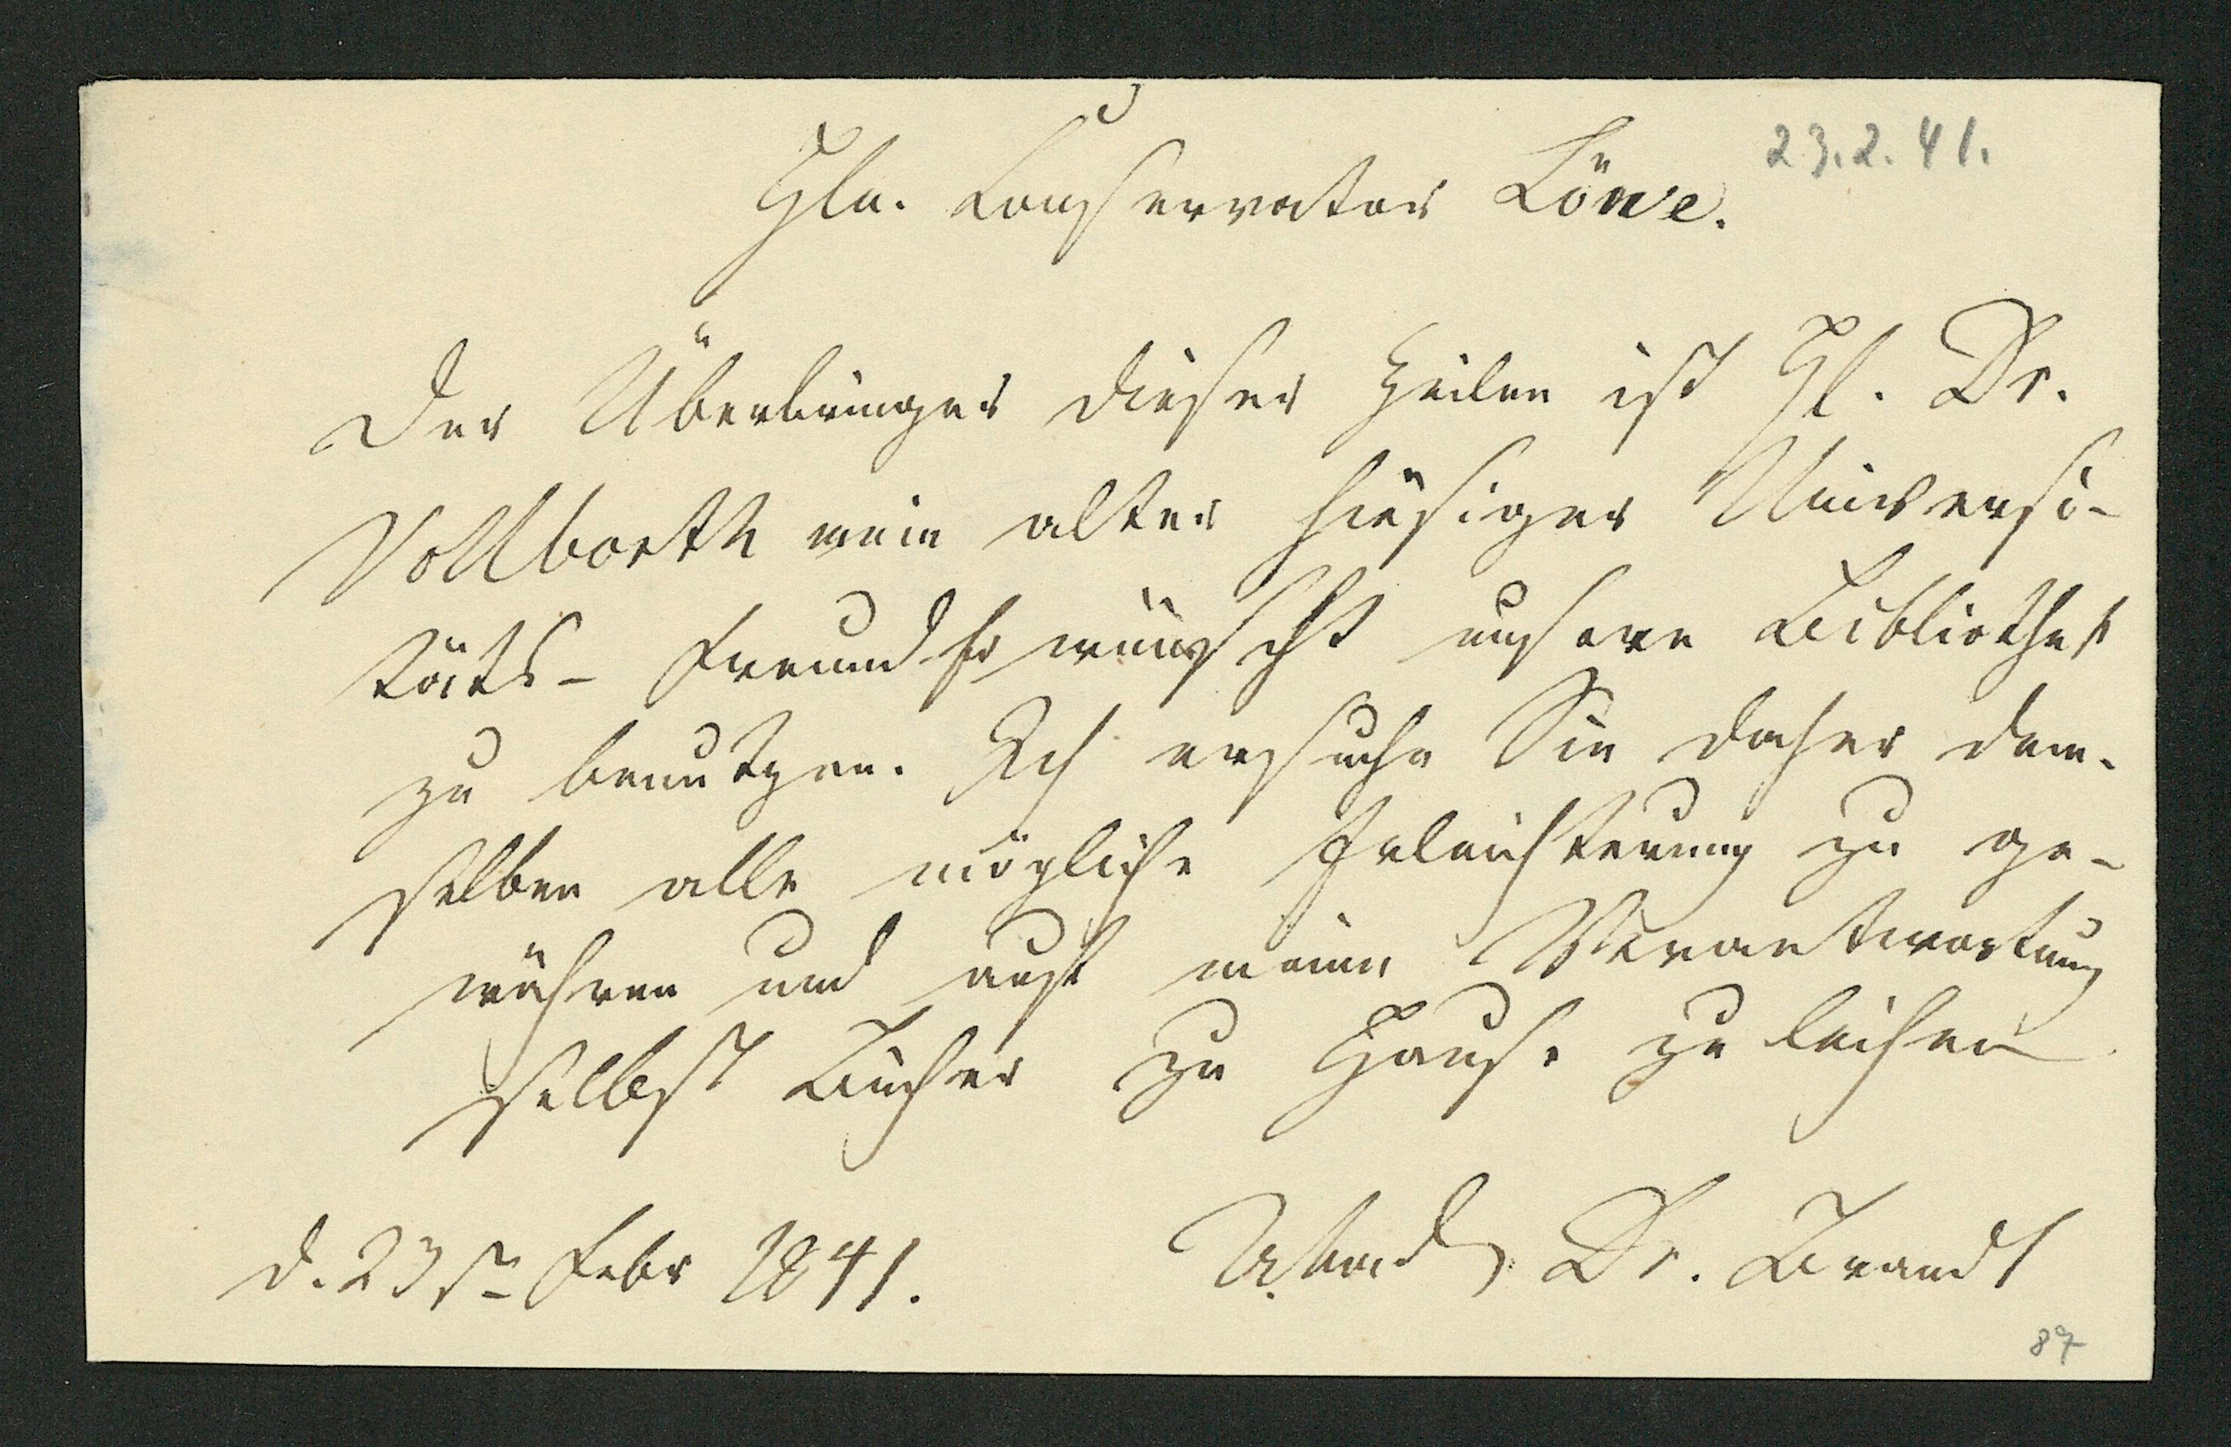 23.2.41.
Hln. Conservator Löwe.
Der Überbringer dieser Zeilen ist Hl. Dr.
Vollborth mein alter hiesiger Universi-
täts- Freund Er wünscht unsere Bibliothek
zu benutzen. Ich ersuche Sie daher dem-
selben alle mögliche Erleichterung zu ge-
währen und auf meine Verantwortung
selbst Bücher zu Hause zu leihen
d. 23st Febr 1841. Akad. Dr. Brandt
87